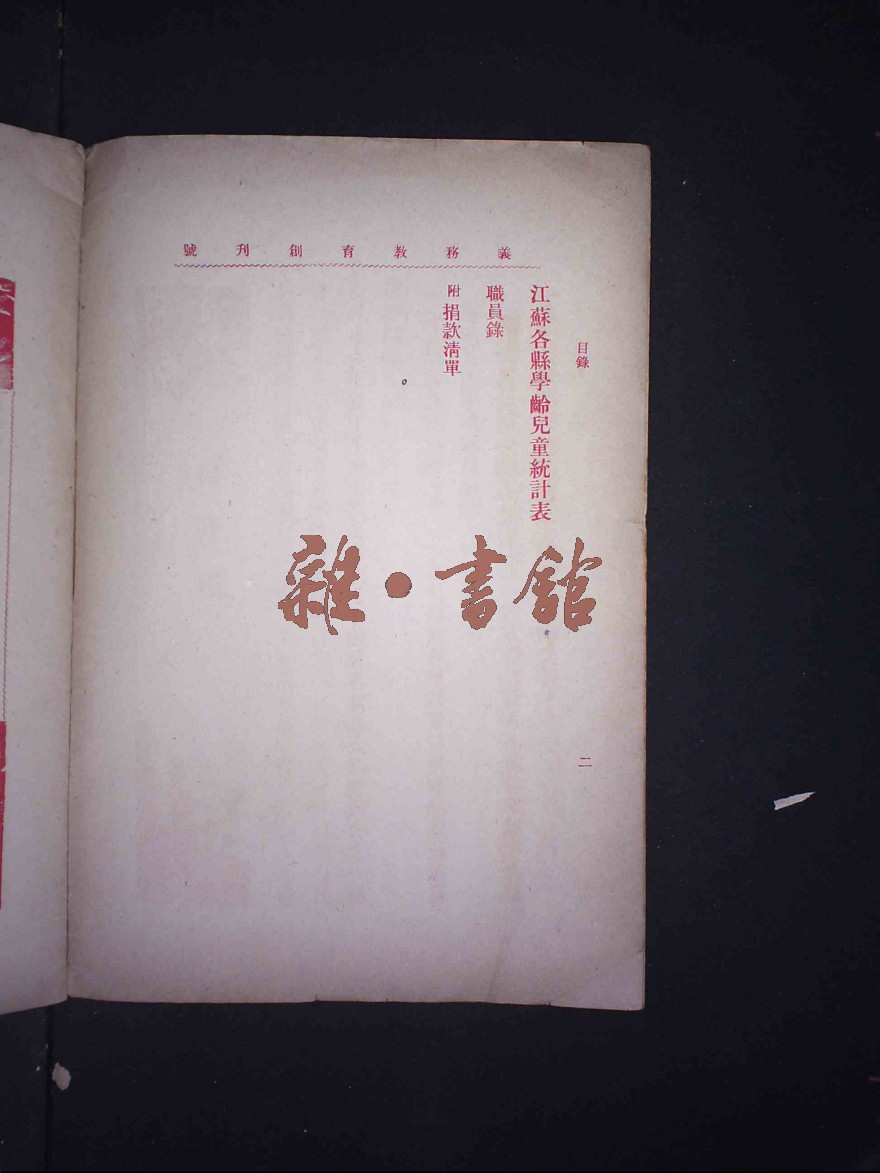 義務教育創刊號
目錄
二
江蘇各縣學齡兒童統計表
職員錄
附捐款清單
雜·書館